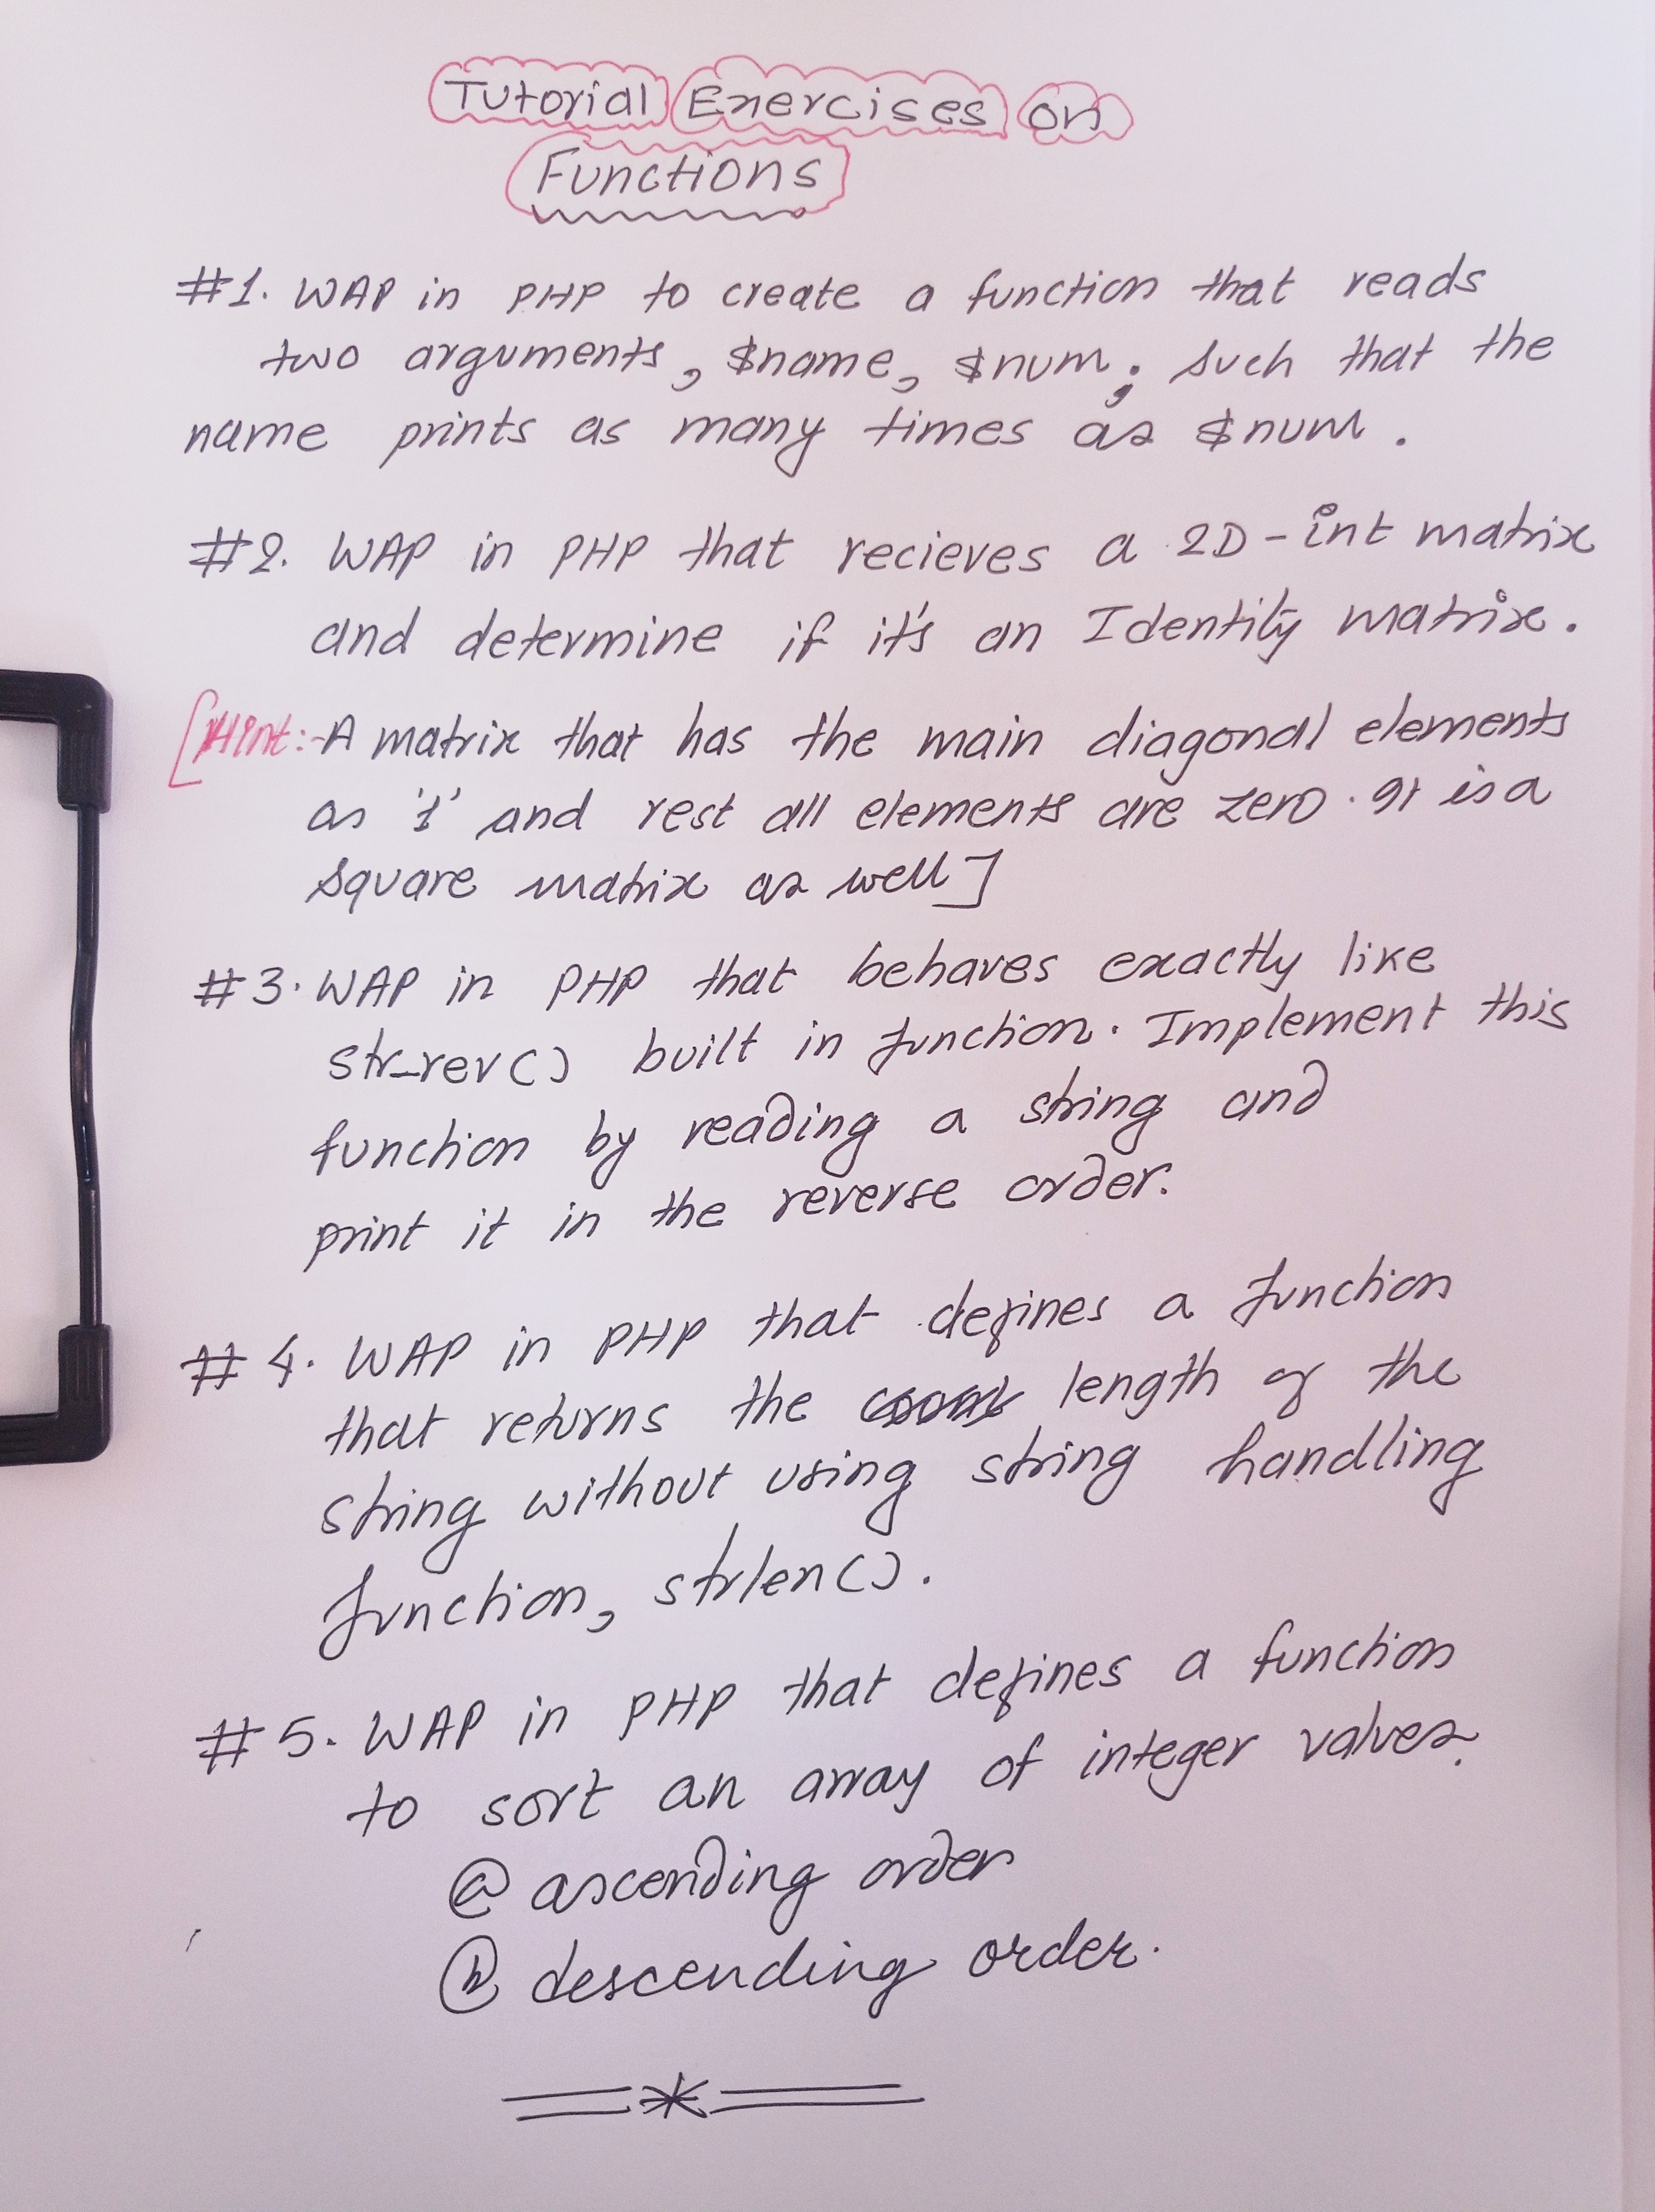 Tutorial Exercises on
Functions
#1. WAP in PHP to create a function that reads
two arguments, $name, $num; such that the
name prints as many times as $num.
#2. WAP in PHP that recieves a 2D-int matrix
and determine if it's an Identity matrix.
[Hint:- A matrix that has the main diagonal elements
as '1' and rest all elements are zero. It is a
square matrix as well]
#3. WAP in PHP that behaves exactly like
str_rev() built in function. Implement this
function by reading a string and
print it in the reverse order.
#4. WAP in PHP that defines a function
that returns the length of the
string without using string handling
function, strlen().
#5. WAP in PHP that defines a function
to sort an array of integer values.
(a) ascending order
(b) descending order.